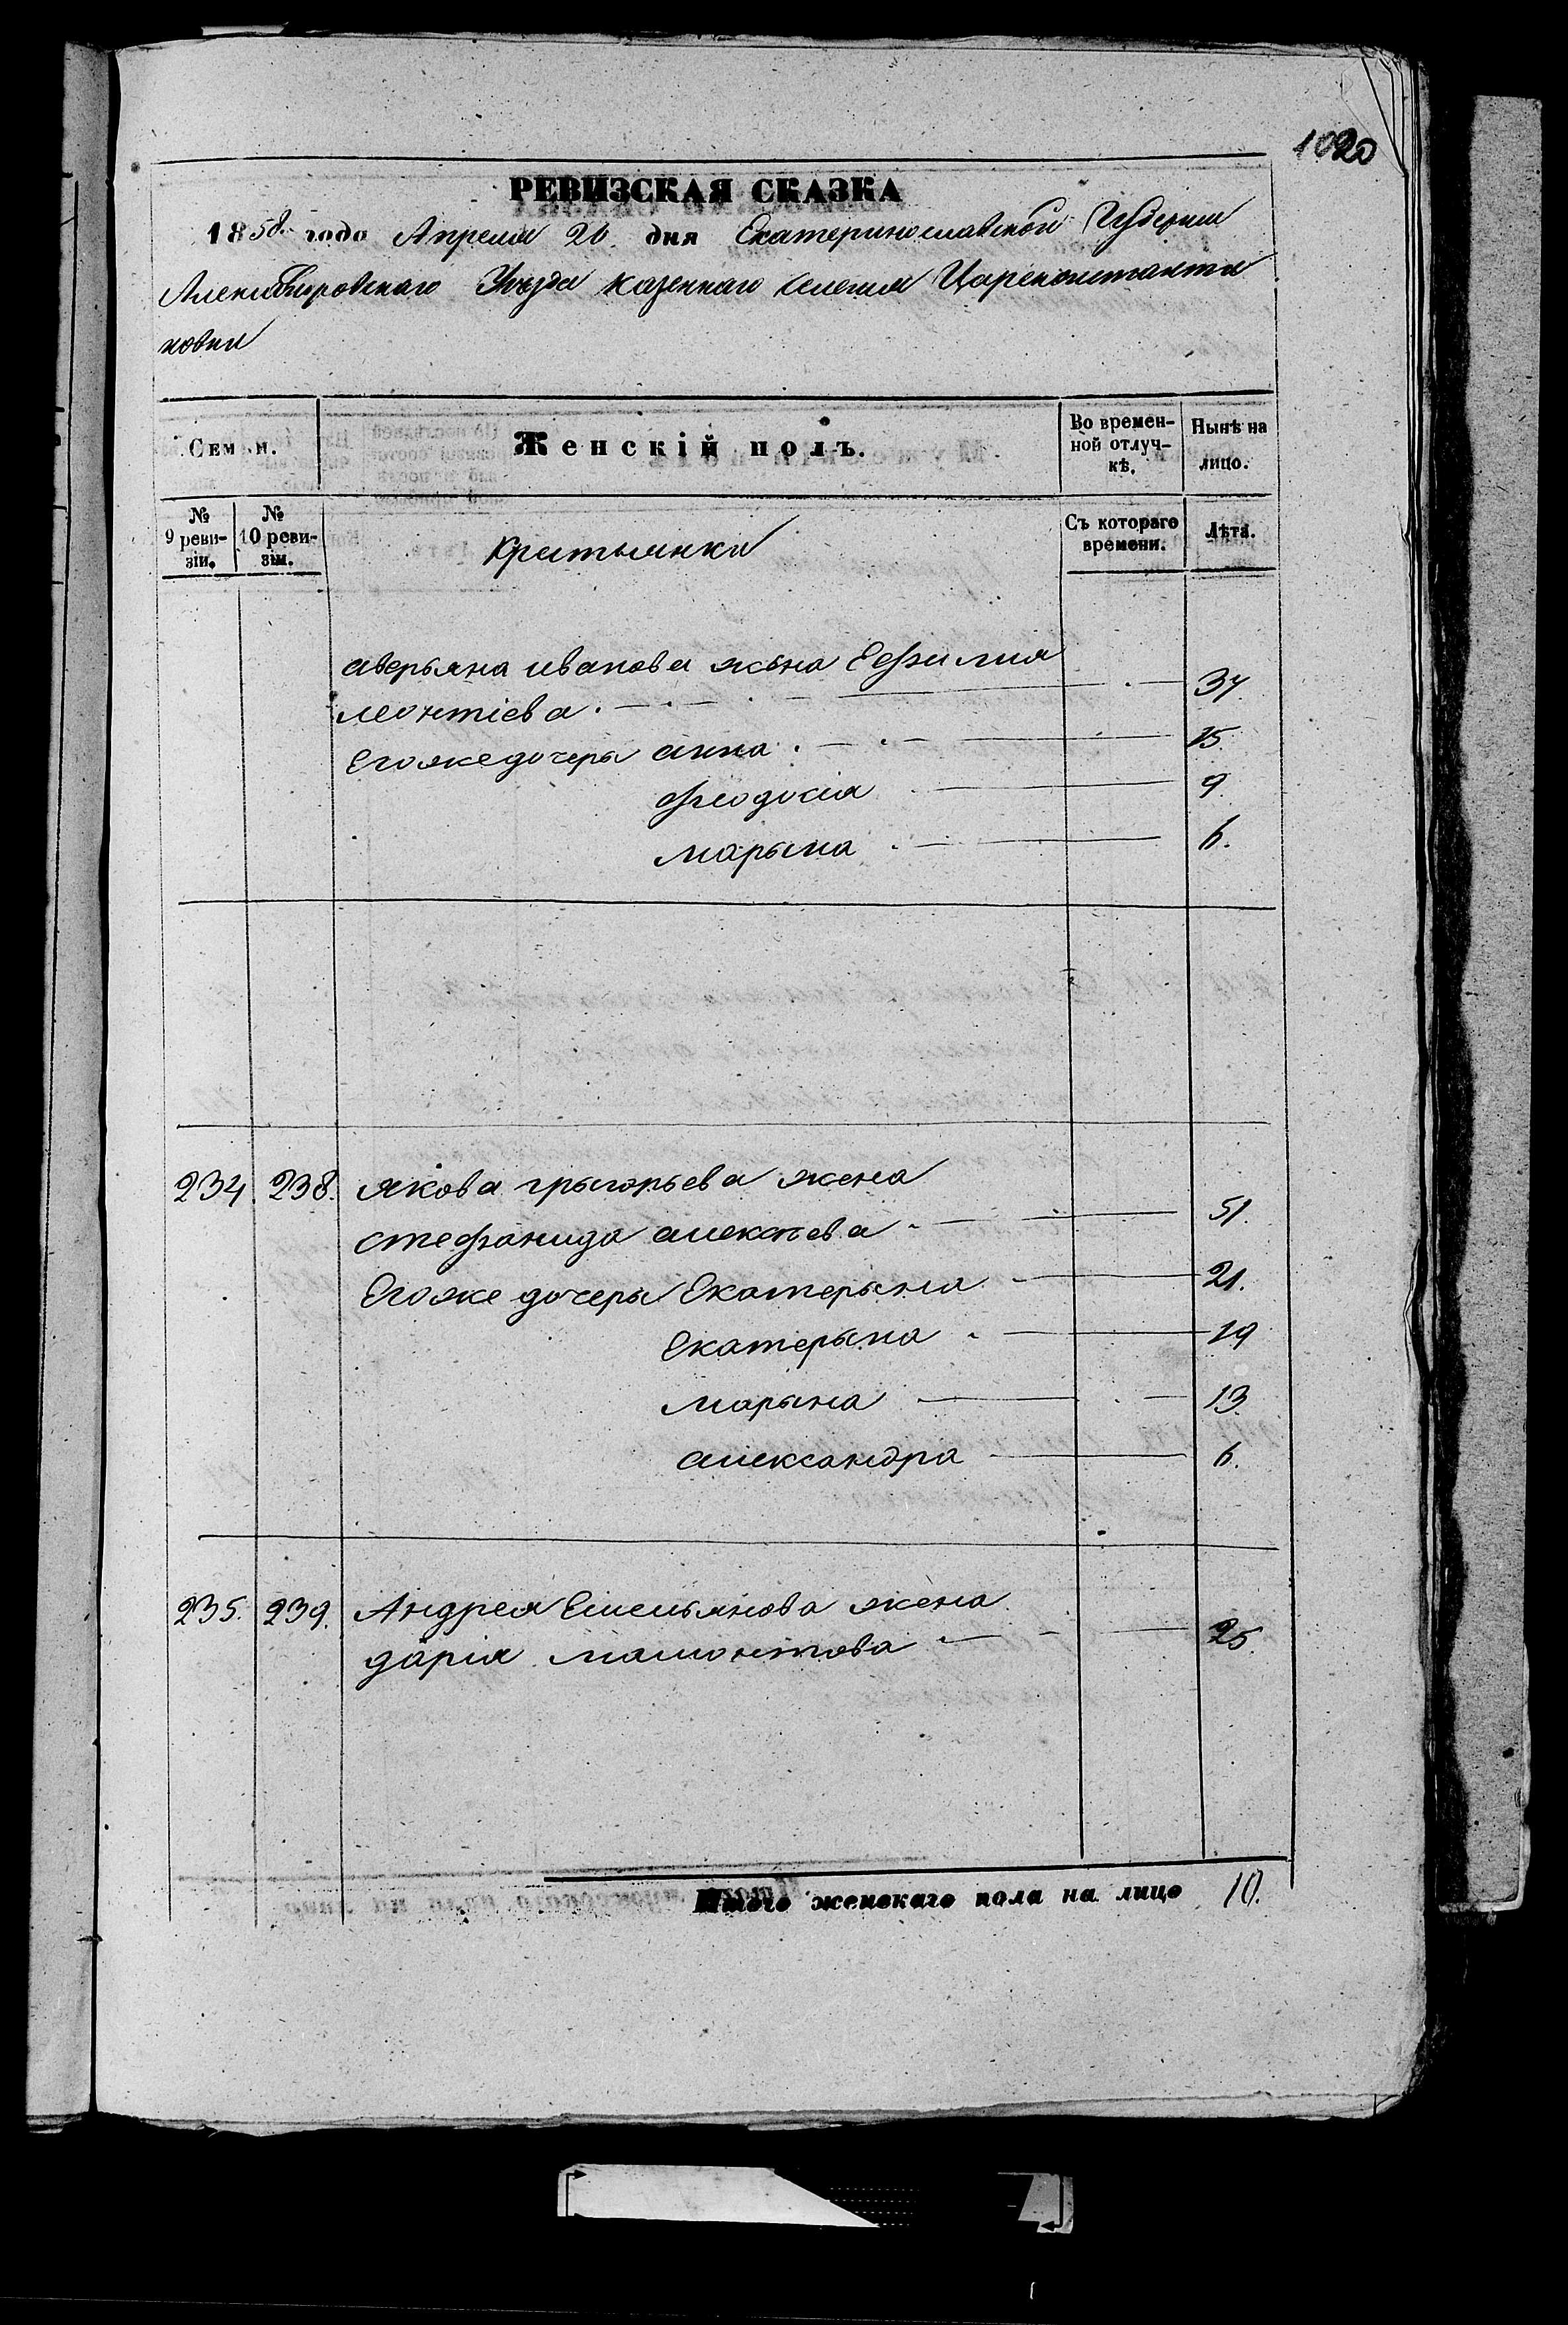 1020
РЕВИЗСКАЯ СКАЗКА
1858 года Апреля 20 дня Екатеринославской Губернии
Александровскаго Уезда казеннаго селения Цареконстанти
новки
Семьи. Женскій полъ. Во времен-ной отлуч-кѣ. Нынѣ на лицо.
№ 9 реви-зіи. № 10 реви-зіи. Крестьянки Съ котораго времени. Лѣта.
аверьяна иванова жена Еефимия
леонтіева 37
Егоже дочеры анна 15.
феодосія 9.
марына 6.
234. 238. якова грыгорьева жена
стефанида алексѣева 51.
Егоже дочеры Екатерына 21.
Екатерына 19
марына 13.
александра 6.
235. 239. Андрея Емельянова жена
дарія мамонтова 25.
Итого женскаго пола на лицо 10.